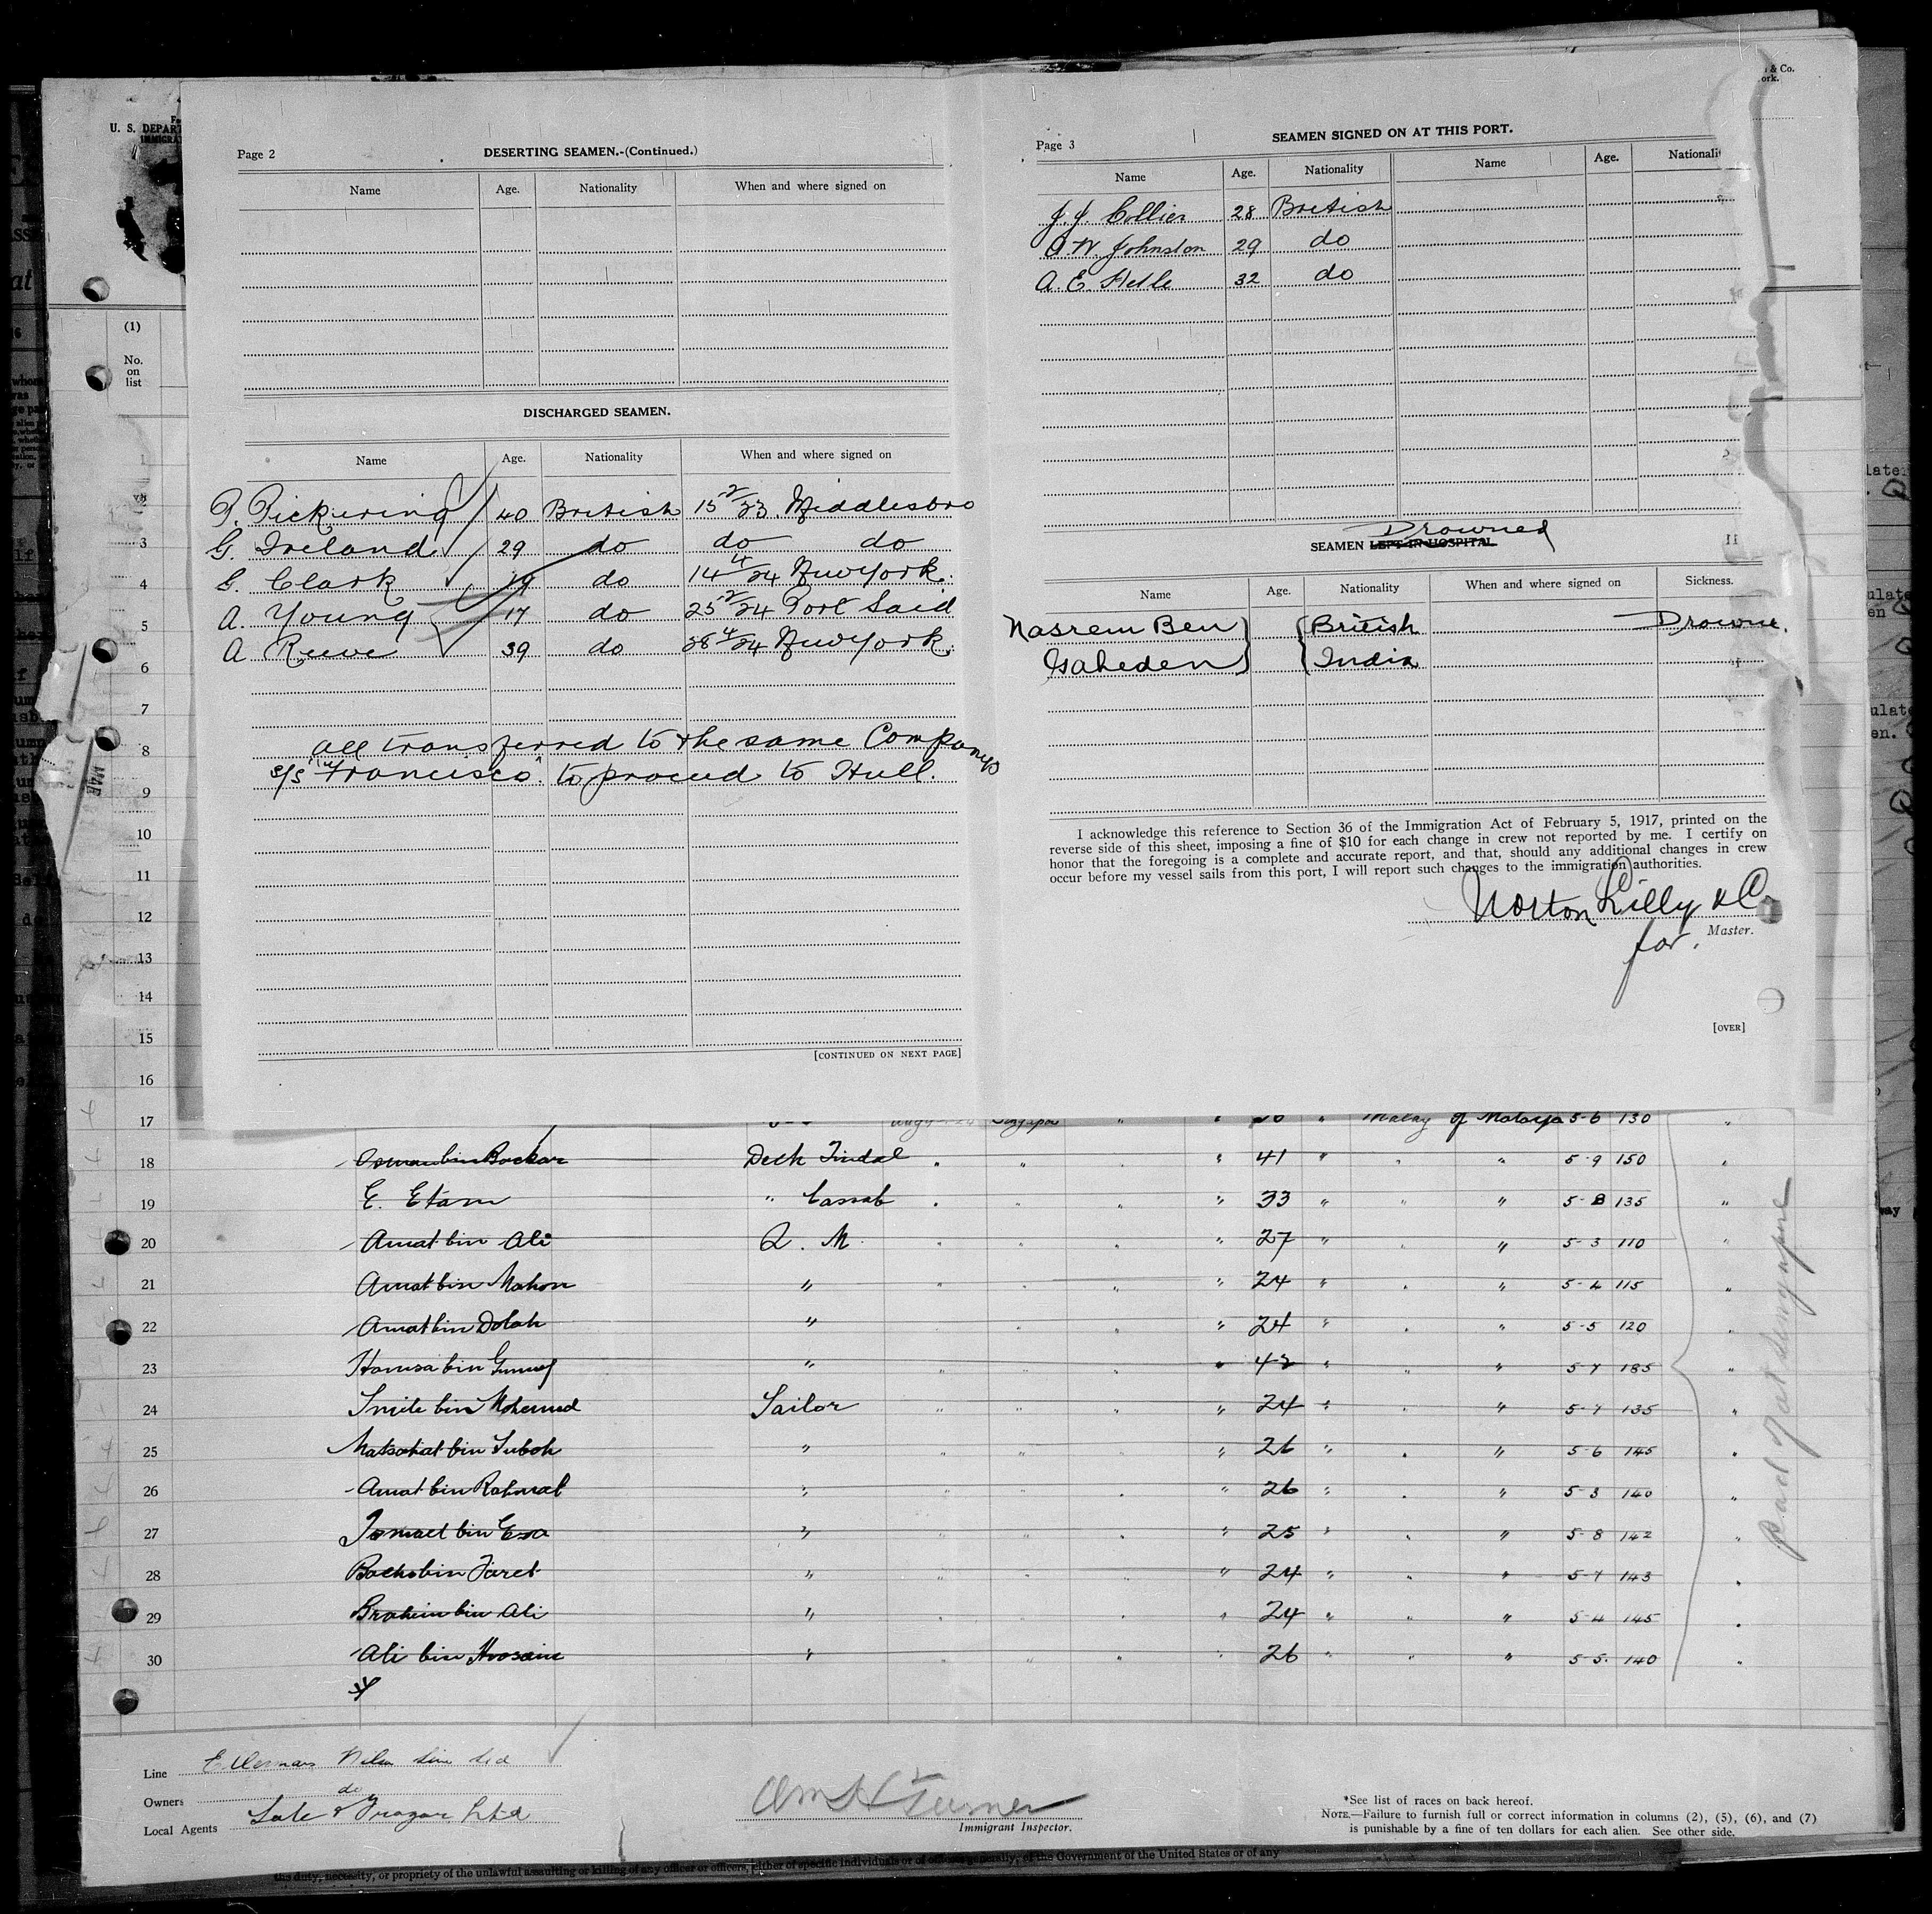 U. S. DEPART
IMMIGRA
& Co.
ork.
(1)
No.
on
list
Page 2
DESERTING SEAMEN.-(Continued.)
Name Age. Nationality When and where signed on
DISCHARGED SEAMEN.
Name Age. Nationality When and where signed on
P. Pickering 40 British 15 2/23 Middlesbro
G. Ireland 29 do do do
G. Clark 19 do 14 4/24 New York
A. Young 17 do 25 2/24 Port Said
A Reeve 39 do 28 4/24 New York
All transferred to the same Companys
s/s "Francisco" to proceed to Hull.
[CONTINUED ON NEXT PAGE]
Page 3
SEAMEN SIGNED ON AT THIS PORT.
Name Age. Nationality Name Age. Nationali
J. J. Collier 28 British
A. W. Johnston 29 do
A. E. 32 do
Drowned
SEAMEN LEFT IN HOSPITAL
Name Age. Nationality When and where signed on Sickness.
Nasrem Ben British Drowne
Isaheden India
I acknowledge this reference to Section 36 of the Immigration Act of February 5, 1917, printed on the
reverse side of this sheet, imposing a fine of $10 for each change in crew not reported by me. I certify on
honor that the foregoing is a complete and accurate report, and that, should any additional changes in crew
occur before my vessel sails from this port, I will report such changes to the immigration authorities.
Norton Lilly & Co
for. Master.
[OVER]
2
3
4
5
6
7
8
9
10
11
12
13
14
15
16
17 Singapore " " " Malay 5-6 130 "
18 Osman bin Backar Deck Tindal " " " " 41 " " " 5-9 150 "
19 E. Etam " Cassab " " " " 33 " " " 5-8 135 "
20 Amat bin Ali Q. M. " " " " 27 " " " 5-3 110 "
21 Amat bin Mahon " " " " " 24 " " " 5-4 115 "
22 Amat bin Dolah " " " " 24 " " " 5-5 120 "
23 Hamsa bin " " " " " 42 " " " 5-7 185 "
24 Smile bin Mohamed Sailor " " " " 24 " " " 5-7 135 "
25 Matsahat bin Tuboh " " " " " 26 " " " 5-6 145 "
26 Amat bin Rahmat " " " " " 26 " " " 5-3 140 "
27 Ismael bin Esa " " " " " 25 " " " 5-8 142 "
28 Bachobin Jaret " " " " " 24 " " " 5-7 143 "
29 Brahim bin Ali " " " " " 24 " " " 5-4 145 "
30 Ali bin Hosain " " " " " 26 " " " 5-5 140 "
Paid off at Singapore
Line Ellermans Wilson Line Ltd
Owners do
Local Agents
Wm H Turner
Immigrant Inspector.
*See list of races on back hereof.
NOTE.—Failure to furnish full or correct information in columns (2), (5), (6), and (7)
is punishable by a fine of ten dollars for each alien. See other side.
the duty, necessity, or propriety of the unlawful assaulting or killing of any officer or officers, either of specific individuals or of officers generally, of the Government of the United States or of any